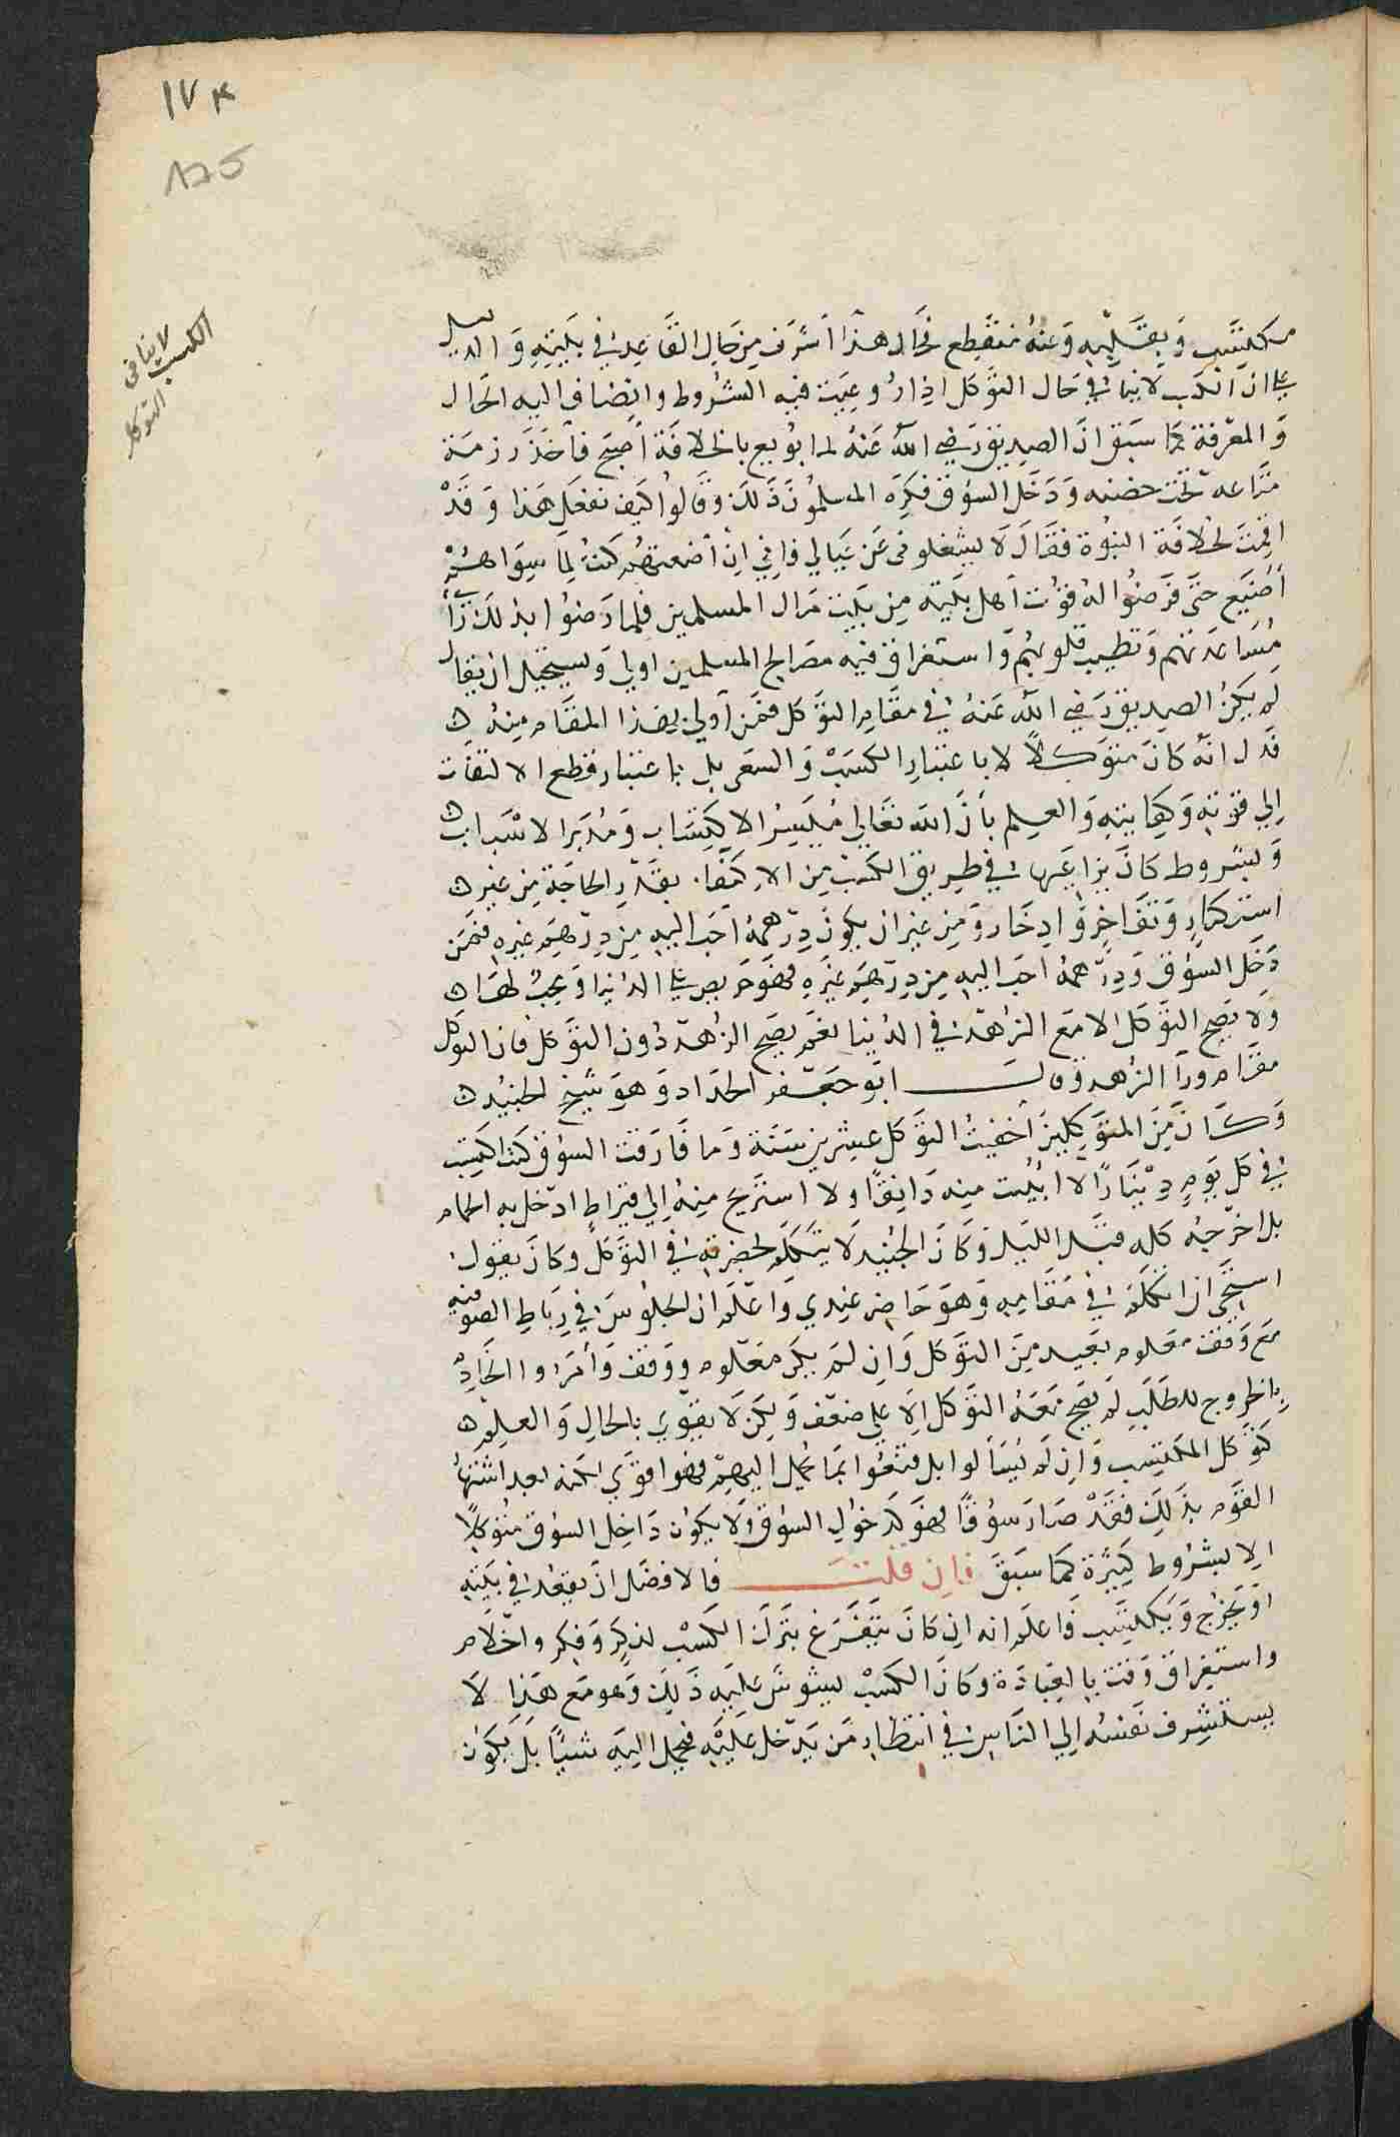 ١٧٨
١٢٥
الكسب
لا ينافى
التوكل
مكتسب وبقلبه وعنه منقطع فحال هذا اشرف من حال القاعد في بيته والدليل
على ان الكسب لا ينافي حال التوكل اذا روعيت فيه الشروط وانضاف اليه الحال
والمعرفة كما سبق ان الصديق رضي الله عنه لما بويع بالخلافة أصبح فأخذ رزمة
متاعه تحت حضنه ودخل السوق فكره المسلمون ذلك وقالوا كيف تفعل هذا وقد
اقمت لخلافة النبوة فقال لا يشغلونى عن عيالي فاني ان أضعتهم كنت لما سواهم
أضيع حتى فرضوا له قوت اهل بيته من بيت مال المسلمين فلما رضوا بذلك رأى
مساعدتهم وتطييب قلوبهم واستغراق فيه مصالح المسلمين اولي ويستحيل ان يقال
لم يكن الصديق رضي الله عنه في مقام التوكل فمن أولي بهذا المقام منه
فدل انه كان متوكلاً لا باعتبار الكسب والسعي بل باعتبار قطع الالتفات
إلي قوته وكفايته والعلم بأن الله تعالي ميسر الاكتساب ومدبر الاسباب
وبشروط كان يراعيها في طريق الكسب من الاكتفاء بقدر الحاجة من غير
استكثار وتفاخر وادخار ومن غير ان يكون درهمه احب اليه من درهم غيره فمن
دخل السوق ودرهمه احب اليه من درهم غيره فهو حريص على الدنيا ومحب لها
ولا يصح التوكل الا مع الزهد في الدنيا نعم يصح الزهد دون التوكل فان التوكل
مقام ورآ الزهد وقال ابو جعفر الحداد وهو شيخ الجنيد
وكان من المتوكلين أخفيت التوكل عشرين سنة وما فارقت السوق كنت اكتسب
في كل يوم دينارًا لا ابيت منه دانقًا ولا استريح منه إلي قيراط ادخل به الحمام
بل اخرجه كله قبل الليل وكان الجنيد لا يتكلم بحضرته في التوكل وكان يقول
استحي ان اتكلم في مقامه وهو حاضر عندي واعلم ان الجلوس في رباط الصوفيه
مع وقف معلوم بعيد من التوكل وان لم يكن معلوم ووقف وأمروا الخادم
بالخروج للطلب لم يصح معه التوكل إلا على ضعف ولكن لا يقوي بالحال والعلم
كتوكل المكتسب وان لم يسألوا بل قنعوا بما يحمل اليهم فهو اقوي لكنه بعد اشتهار
القوم بذلك فقد صار سوقًا فهو كدخول السوق ولا يكون داخل السوق متوكلاً
الا بشروط كثيرة كما سبق فان قلت فالافضل ان يقعد في بيته
او يخرج ويكتسب فاعلم انه ان كان يتفرغ بترك الكسب لذكر وفكر واخلاص
واستغراق وقت بالعبادة وكان الكسب يشوش عليه ذلك وهو مع هذا لا
يستشرف نفسه إلي الناس في انتظار من يدخل عليه فيحمل اليه شيئًا بل يكون